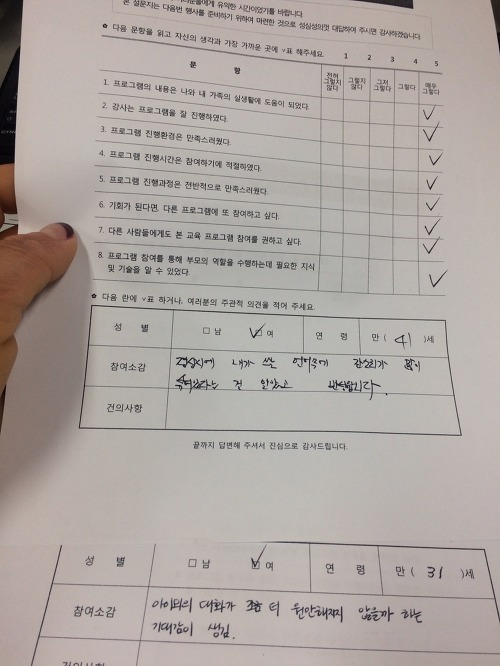 유익한 시간이었기를 바랍니다.
본 설문지는 다음번 행사를 준비하기 위하여 마련한 것으로 성심성의껏 대답하여 주시면 감사하겠습니다
✿ 다음 문항을 읽고 자신의 생각과 가장 가까운 곳에 v표 해주세요.
1 2 3 4 5
문 항 전혀 그렇지 않다 그렇지 않다 그저 그렇다 그렇다 매우 그렇다
1. 프로그램의 내용은 나와 내 가족의 실생활에 도움이 되었다.
2. 강사는 프로그램을 잘 진행하였다.
3. 프로그램 진행환경은 만족스러웠다.
4. 프로그램 진행시간은 참여하기에 적절하였다.
5. 프로그램 진행과정은 전반적으로 만족스러웠다.
6. 기회가 된다면, 다른 프로그램에 또 참여하고 싶다.
7. 다른 사람들에게도 본 교육 프로그램 참여를 권하고 싶다.
8. 프로그램 참여를 통해 부모의 역할을 수행하는데 필요한 지식
및 기술을 알 수 있었다.
✿ 다음 란에 v표 하거나, 여러분의 주관적 의견을 적어 주세요.
성 별 □ 남 □ 여 연 령 만 ( 41 ) 세
참여소감 내가 쓴 언어속에 많이
건 알았고 반성합니다.
건의사항
끝까지 답변해 주셔서 진심으로 감사드립니다.
성 별 □ 남 □ 여 연 령 만 ( 31 ) 세
참여소감 아이와의 대화가 더 원만해지지 않을까 하는
기대감이 생김.
건의사항